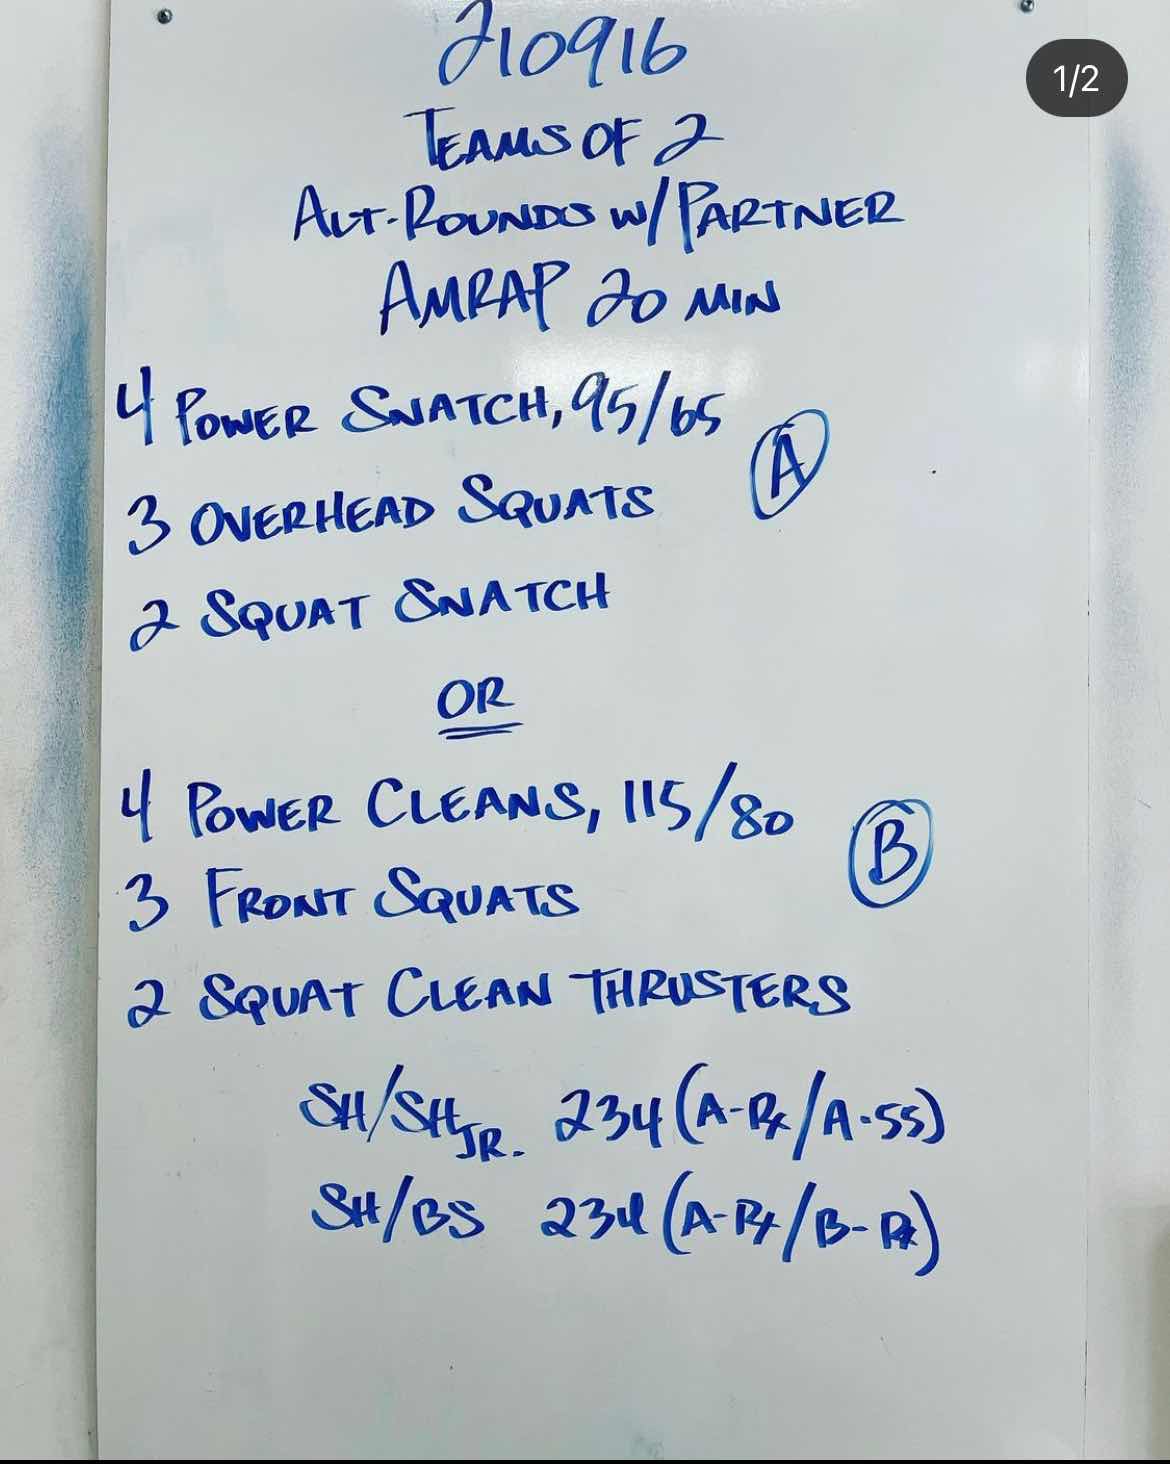 210916
1/2
TEAMS OF 2
ALT-ROUNDS W/ PARTNER
AMRAP 20 MIN
4 POWER SNATCH, 95/65
A
3 OVERHEAD SQUATS
2 SQUAT SNATCH
OR
4 POWER CLEANS, 115/80
B
3 FRONT SQUATS
2 SQUAT CLEAN THRUSTERS
SH/SH JR. 234 (A-Rx/A-55)
SH/BS 234 (A-Rx/B-Rx)